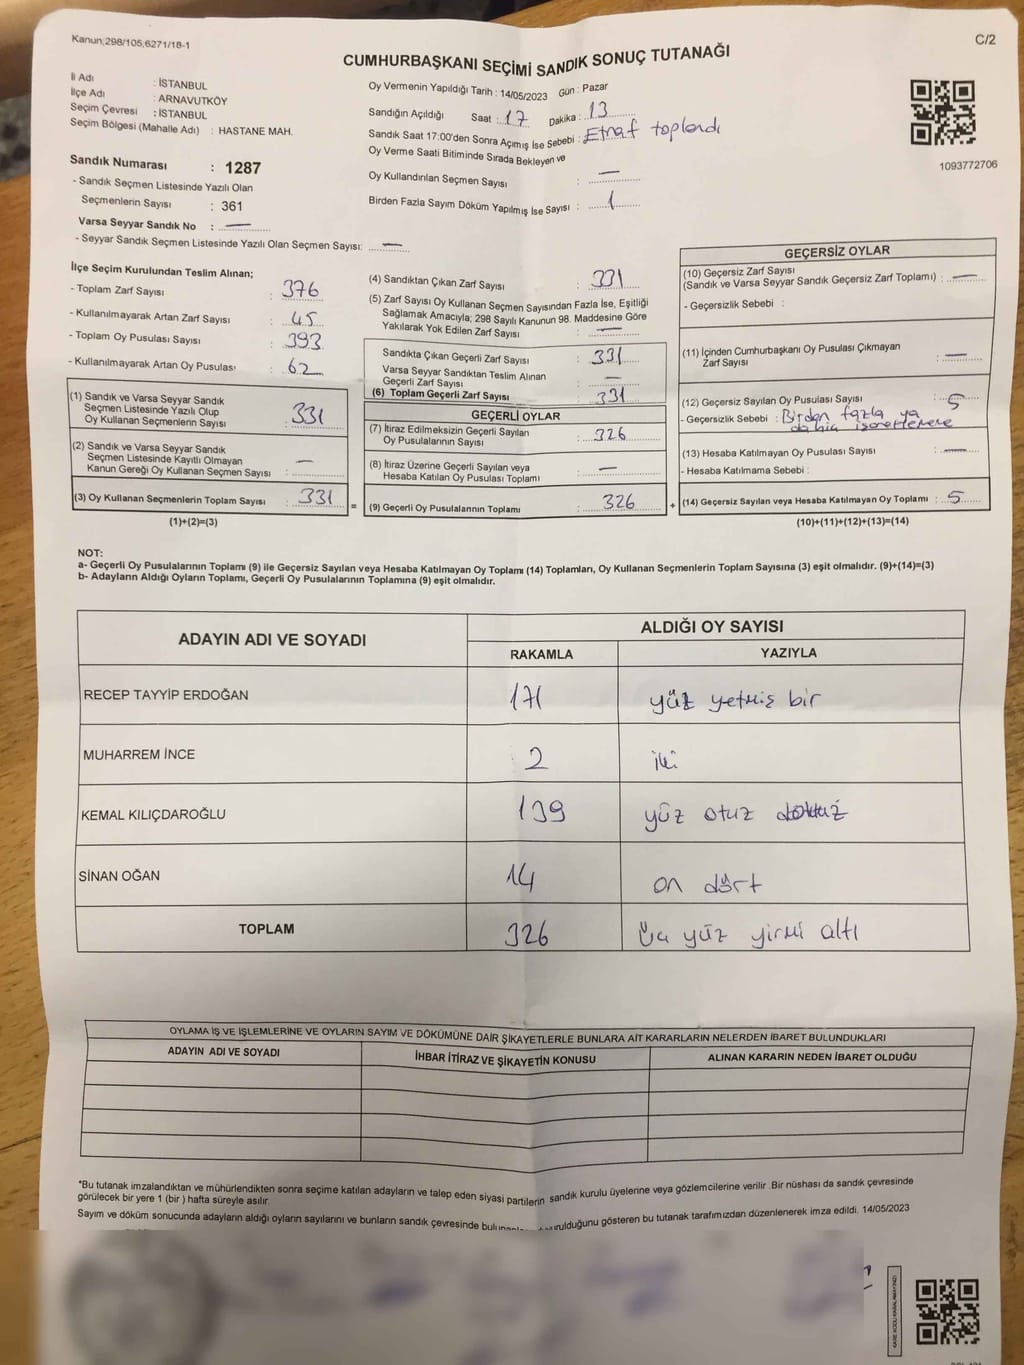 Kanun;298/105,6271/18-1
C/2
CUMHURBAŞKANI SEÇİMİ SANDIK SONUÇ TUTANAĞI
İl Adı : İSTANBUL
İlçe Adı : ARNAVUTKÖY
Seçim Çevresi : İSTANBUL
Seçim Bölgesi (Mahalle Adı) : HASTANE MAH.
Oy Vermenin Yapıldığı Tarih : 14/05/2023 Gün : Pazar
Sandığın Açıldığı Saat : 17 Dakika : 13
Sandık Saat 17:00'den Sonra Açımış İse Sebebi : Etraf toplandı
Oy Verme Saati Bitiminde Sırada Bekleyen ve
Oy Kullandırılan Seçmen Sayısı : —
Birden Fazla Sayım Döküm Yapılmış İse Sayısı : 1
1093772706
Sandık Numarası : 1287
- Sandık Seçmen Listesinde Yazılı Olan
Seçmenlerin Sayısı : 361
Varsa Seyyar Sandık No : —
- Seyyar Sandık Seçmen Listesinde Yazılı Olan Seçmen Sayısı: —
İlçe Seçim Kurulundan Teslim Alınan;
- Toplam Zarf Sayısı : 376
- Kullanılmayarak Artan Zarf Sayısı : 45
- Toplam Oy Pusulası Sayısı : 393
- Kullanılmayarak Artan Oy Pusulası : 62
(1) Sandık ve Varsa Seyyar Sandık
Seçmen Listesinde Yazılı Olup
Oy Kullanan Seçmenlerin Sayısı : 331
(2) Sandık ve Varsa Seyyar Sandık
Seçmen Listesinde Kayıtlı Olmayan
Kanun Gereği Oy Kullanan Seçmen Sayısı : —
(3) Oy Kullanan Seçmenlerin Toplam Sayısı : 331
(1)+(2)=(3)
=
(4) Sandıktan Çıkan Zarf Sayısı : 331
(5) Zarf Sayısı Oy Kullanan Seçmen Sayısından Fazla İse, Eşitliği
Sağlamak Amacıyla; 298 Sayılı Kanunun 98. Maddesine Göre
Yakılarak Yok Edilen Zarf Sayısı : —
Sandıkta Çıkan Geçerli Zarf Sayısı : 331
Varsa Seyyar Sandıktan Teslim Alınan
Geçerli Zarf Sayısı : —
(6) Toplam Geçerli Zarf Sayısı : 331
GEÇERLİ OYLAR
(7) İtiraz Edilmeksizin Geçerli Sayılan
Oy Pusulalarının Sayısı : 326
(8) İtiraz Üzerine Geçerli Sayılan veya
Hesaba Katılan Oy Pusulası Toplamı : —
(9) Geçerli Oy Pusulalarının Toplamı : 326
+
GEÇERSİZ OYLAR
(10) Geçersiz Zarf Sayısı
(Sandık ve Varsa Seyyar Sandık Geçersiz Zarf Toplamı) : —
- Geçersizlik Sebebi :
(11) İçinden Cumhurbaşkanı Oy Pusulası Çıkmayan
Zarf Sayısı : —
(12) Geçersiz Sayılan Oy Pusulası Sayısı : 5
- Geçersizlik Sebebi : Birden fazla ya
da hiç işaretlenme
(13) Hesaba Katılmayan Oy Pusulası Sayısı : —
- Hesaba Katılmama Sebebi :
(14) Geçersiz Sayılan veya Hesaba Katılmayan Oy Toplamı : 5
(10)+(11)+(12)+(13)=(14)
NOT:
a- Geçerli Oy Pusulalarının Toplamı (9) ile Geçersiz Sayılan veya Hesaba Katılmayan Oy Toplamı (14) Toplamları, Oy Kullanan Seçmenlerin Toplam Sayısına (3) eşit olmalıdır. (9)+(14)=(3)
b- Adayların Aldığı Oyların Toplamı, Geçerli Oy Pusulalarının Toplamına (9) eşit olmalıdır.
ADAYIN ADI VE SOYADI
ALDIĞI OY SAYISI
RAKAMLA YAZIYLA
RECEP TAYYİP ERDOĞAN 171 yüz yetmiş bir
MUHARREM İNCE 2 iki
KEMAL KILIÇDAROĞLU 139 yüz otuz dokuz
SİNAN OĞAN 14 on dört
TOPLAM 326 üç yüz yirmi altı
OYLAMA İŞ VE İŞLEMLERİNE VE OYLARIN SAYIM VE DÖKÜMÜNE DAİR ŞİKAYETLERLE BUNLARA AİT KARARLARIN NELERDEN İBARET BULUNDUKLARI
ADAYIN ADI VE SOYADI İHBAR İTİRAZ VE ŞİKAYETİN KONUSU ALINAN KARARIN NEDEN İBARET OLDUĞU
*Bu tutanak imzalandıktan ve mühürlendikten sonra seçime katılan adayların ve talep eden siyasi partilerin sandık kurulu üyelerine veya gözlemcilerine verilir .Bir nüshası da sandık çevresinde
görülecek bir yere 1 (bir ) hafta süreyle asılır.
Sayım ve döküm sonucunda adayların aldığı oyların sayılarını ve bunların sandık çevresinde gösteren bu tutanak tarafımızdan düzenlenerek imza edildi. 14/05/2023